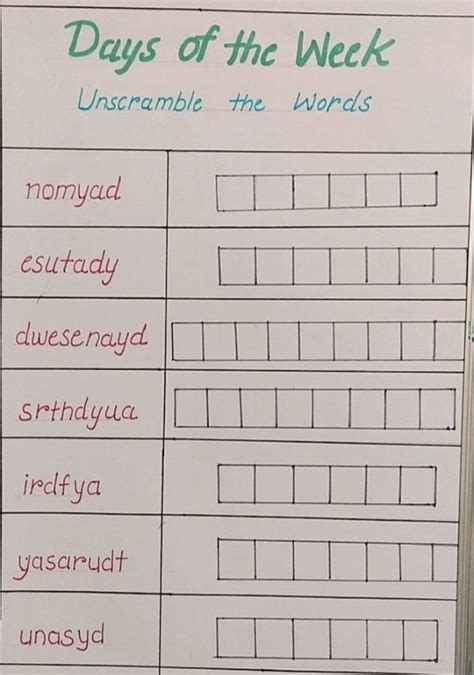 Days of the Week
Unscramble the Words
nomyad
esutady
dwesenayd
srthdyua
irdfya
yasarudt
unasyd